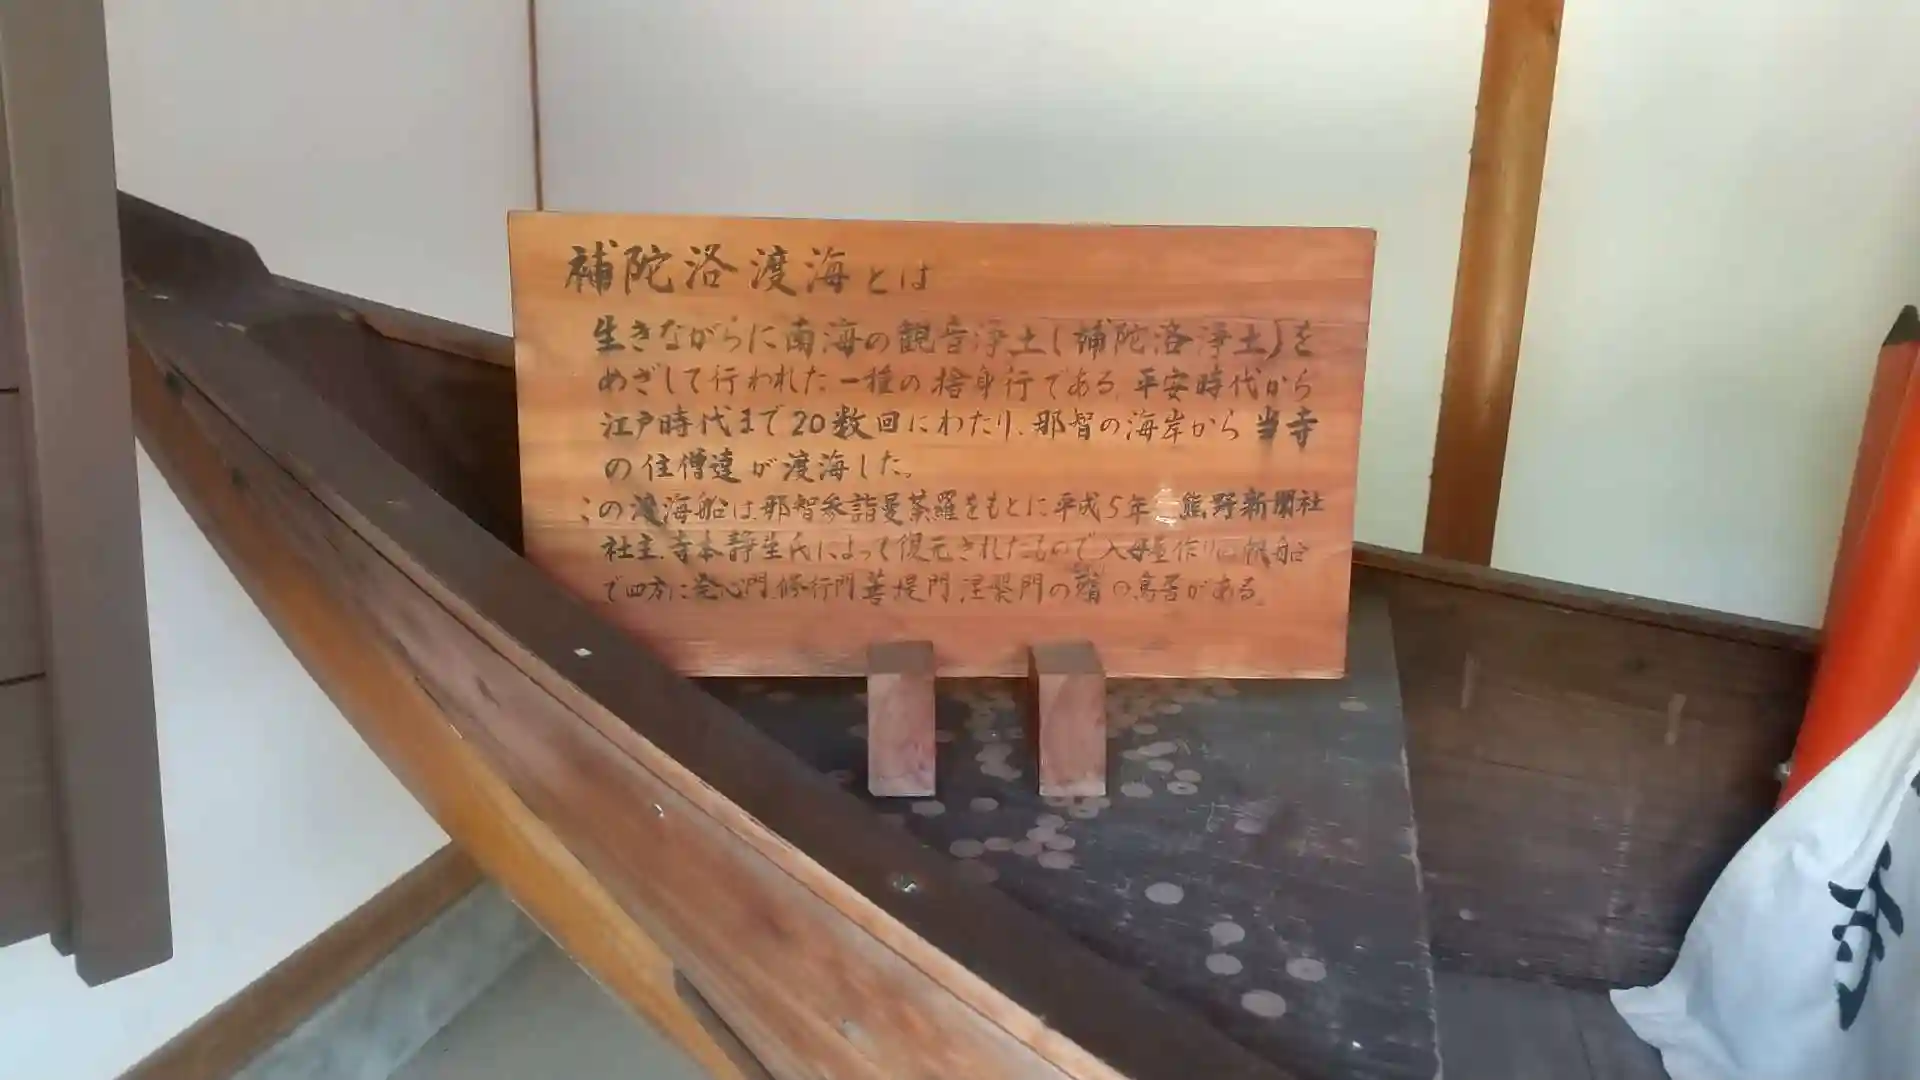 補陀洛渡海とは
生きながらに南海の観音浄土(補陀洛浄土)を
めざして行われた一種の捨身行である。平安時代から
江戸時代まで20数回にわたり、那智の海岸から当寺
の住僧達が渡海した。
この渡海船は那智参詣曼荼羅をもとに平成5年 熊野新聞社
社主、寺本静生氏によって復元されたもので入母屋作りの帆船
で四方に発心門、修行門、菩提門、涅槃門の の鳥居がある。
寺